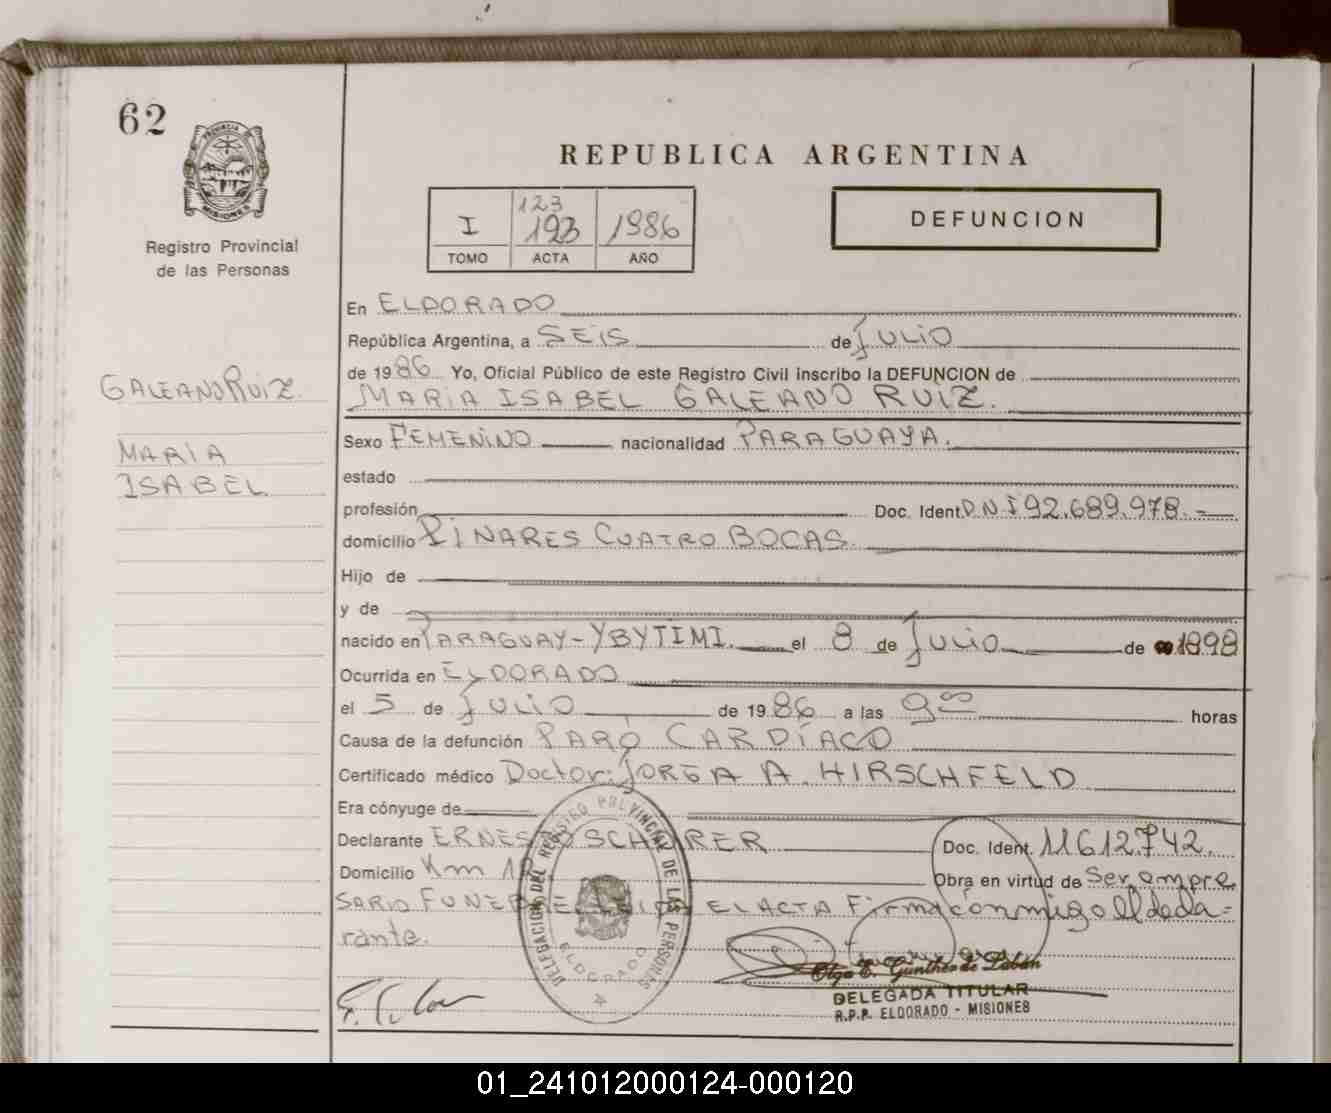 62
PROVINCIA DE
MISIONES
Registro Provincial
de las Personas
REPUBLICA ARGENTINA
123
I 123 1986
TOMO ACTA AÑO
DEFUNCION
En ELDORADO
República Argentina, a SEIS de JULIO
de 1986 Yo, Oficial Público de este Registro Civil inscribo la DEFUNCION de
MARIA ISABEL GALEANO RUIZ.
GALEANO RUIZ.
MARIA
ISABEL
Sexo FEMENINO nacionalidad PARAGUAYA.
estado
profesión Doc. Ident. D.N.I 92.689.978.-
domicilio PINARES CUATRO BOCAS.
Hijo de
y de
nacido en PARAGUAY-YBYTIMI. el 8 de JULIO de 1898
Ocurrida en ELDORADO
el 5 de JULIO de 1986 a las 9ºº horas
Causa de la defunción PARO CARDÍACO
Certificado médico Doctor: JORGA A. HIRSCHFELD
Era cónyuge de
Declarante ERNESTO SCHERER Doc. Ident. 11612742.
Domicilio Km Obra en virtud de Ser empre
SARIO FUNEBRE. EL ACTA Firma conmigo el decla=
rante.
DELEGACION DEL REGISTRO PROVINCIAL DE LAS PERSONAS
ELDORADO
Olga E. Günther de Labán
DELEGADA TITULAR
R.P.P. ELDORADO - MISIONES
01_241012000124-000120